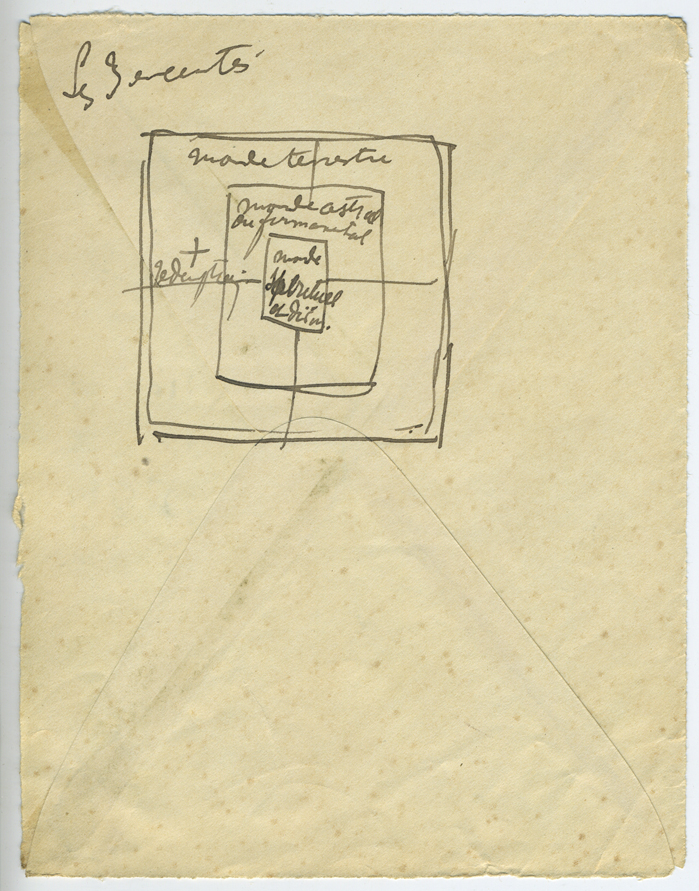 Les 3 enceintes
monde terrestre
monde astral
ou firmamental
monde
spirituel
et divin.
+
redemption